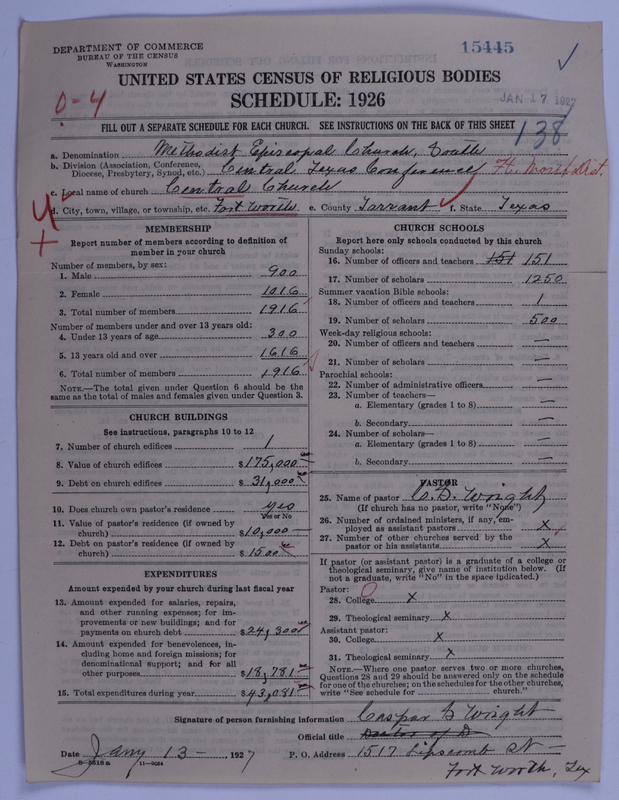 DEPARTMENT OF COMMERCE
BUREAU OF THE CENSUS
WASHINGTON
15445
UNITED STATES CENSUS OF RELIGIOUS BODIES
SCHEDULE: 1926
0-4
JAN 17 1927
138
FILL OUT A SEPARATE SCHEDULE FOR EACH CHURCH. SEE INSTRUCTIONS ON THE BACK OF THIS SHEET
a. Denomination Methodist Episcopal Church, South
b. Division (Association, Conference, Diocese, Presbytery, Synod, etc.) Central Texas Conference Ft. Worth Dist.
c. Local name of church Central Church
d. City, town, village, or township, etc. Fort Worth e. County Tarrant f. State Texas
MEMBERSHIP
Report number of members according to definition of
member in your church
Number of members, by sex:
1. Male 900
2. Female 1016
3. Total number of members 1916
Number of members under and over 13 years old:
4. Under 13 years of age 300
5. 13 years old and over 1616
6. Total number of members 1916
NOTE.—The total given under Question 6 should be the
same as the total of males and females given under Question 3.
CHURCH BUILDINGS
See instructions, paragraphs 10 to 12
7. Number of church edifices 1
8. Value of church edifices $175,000
9. Debt on church edifices $31,000
10. Does church own pastor's residence yes
Yes or No
11. Value of pastor's residence (if owned by
church) $10,000—
12. Debt on pastor's residence (if owned by
church) $1500
EXPENDITURES
Amount expended by your church during last fiscal year
13. Amount expended for salaries, repairs,
and other running expenses; for im-
provements or new buildings; and for
payments on church debt $24,300
14. Amount expended for benevolences, in-
cluding home and foreign missions; for
denominational support; and for all
other purposes $18,781
15. Total expenditures during year $43,081
CHURCH SCHOOLS
Report here only schools conducted by this church
Sunday schools:
16. Number of officers and teachers 151 151
17. Number of scholars 1250
Summer vacation Bible schools:
18. Number of officers and teachers 1
19. Number of scholars 500
Week-day religious schools:
20. Number of officers and teachers —
21. Number of scholars —
Parochial schools:
22. Number of administrative officers —
23. Number of teachers—
a. Elementary (grades 1 to 8) —
b. Secondary —
24. Number of scholars—
a. Elementary (grades 1 to 8) —
b. Secondary —
PASTOR
25. Name of pastor C. G. Wright
(If church has no pastor, write "None")
26. Number of ordained ministers, if any, em-
ployed as assistant pastors x
27. Number of other churches served by the
pastor or his assistants x
If pastor (or assistant pastor) is a graduate of a college or
theological seminary, give name of institution below. (If
not a graduate, write "No" in the space indicated.)
Pastor:
28. College x
29. Theological seminary x
Assistant pastor:
30. College x
31. Theological seminary x
NOTE.—Where one pastor serves two or more churches,
Questions 28 and 29 should be answered only on the schedule
for one of the churches; on the schedules for the other churches,
write "See schedule for church."
Signature of person furnishing information Caspar G Wright
Official title Doctor of D
Date Jany 13— 1927 P. O. Address 1517 Lipscomb St—
11—9084 Fort Worth, Tex